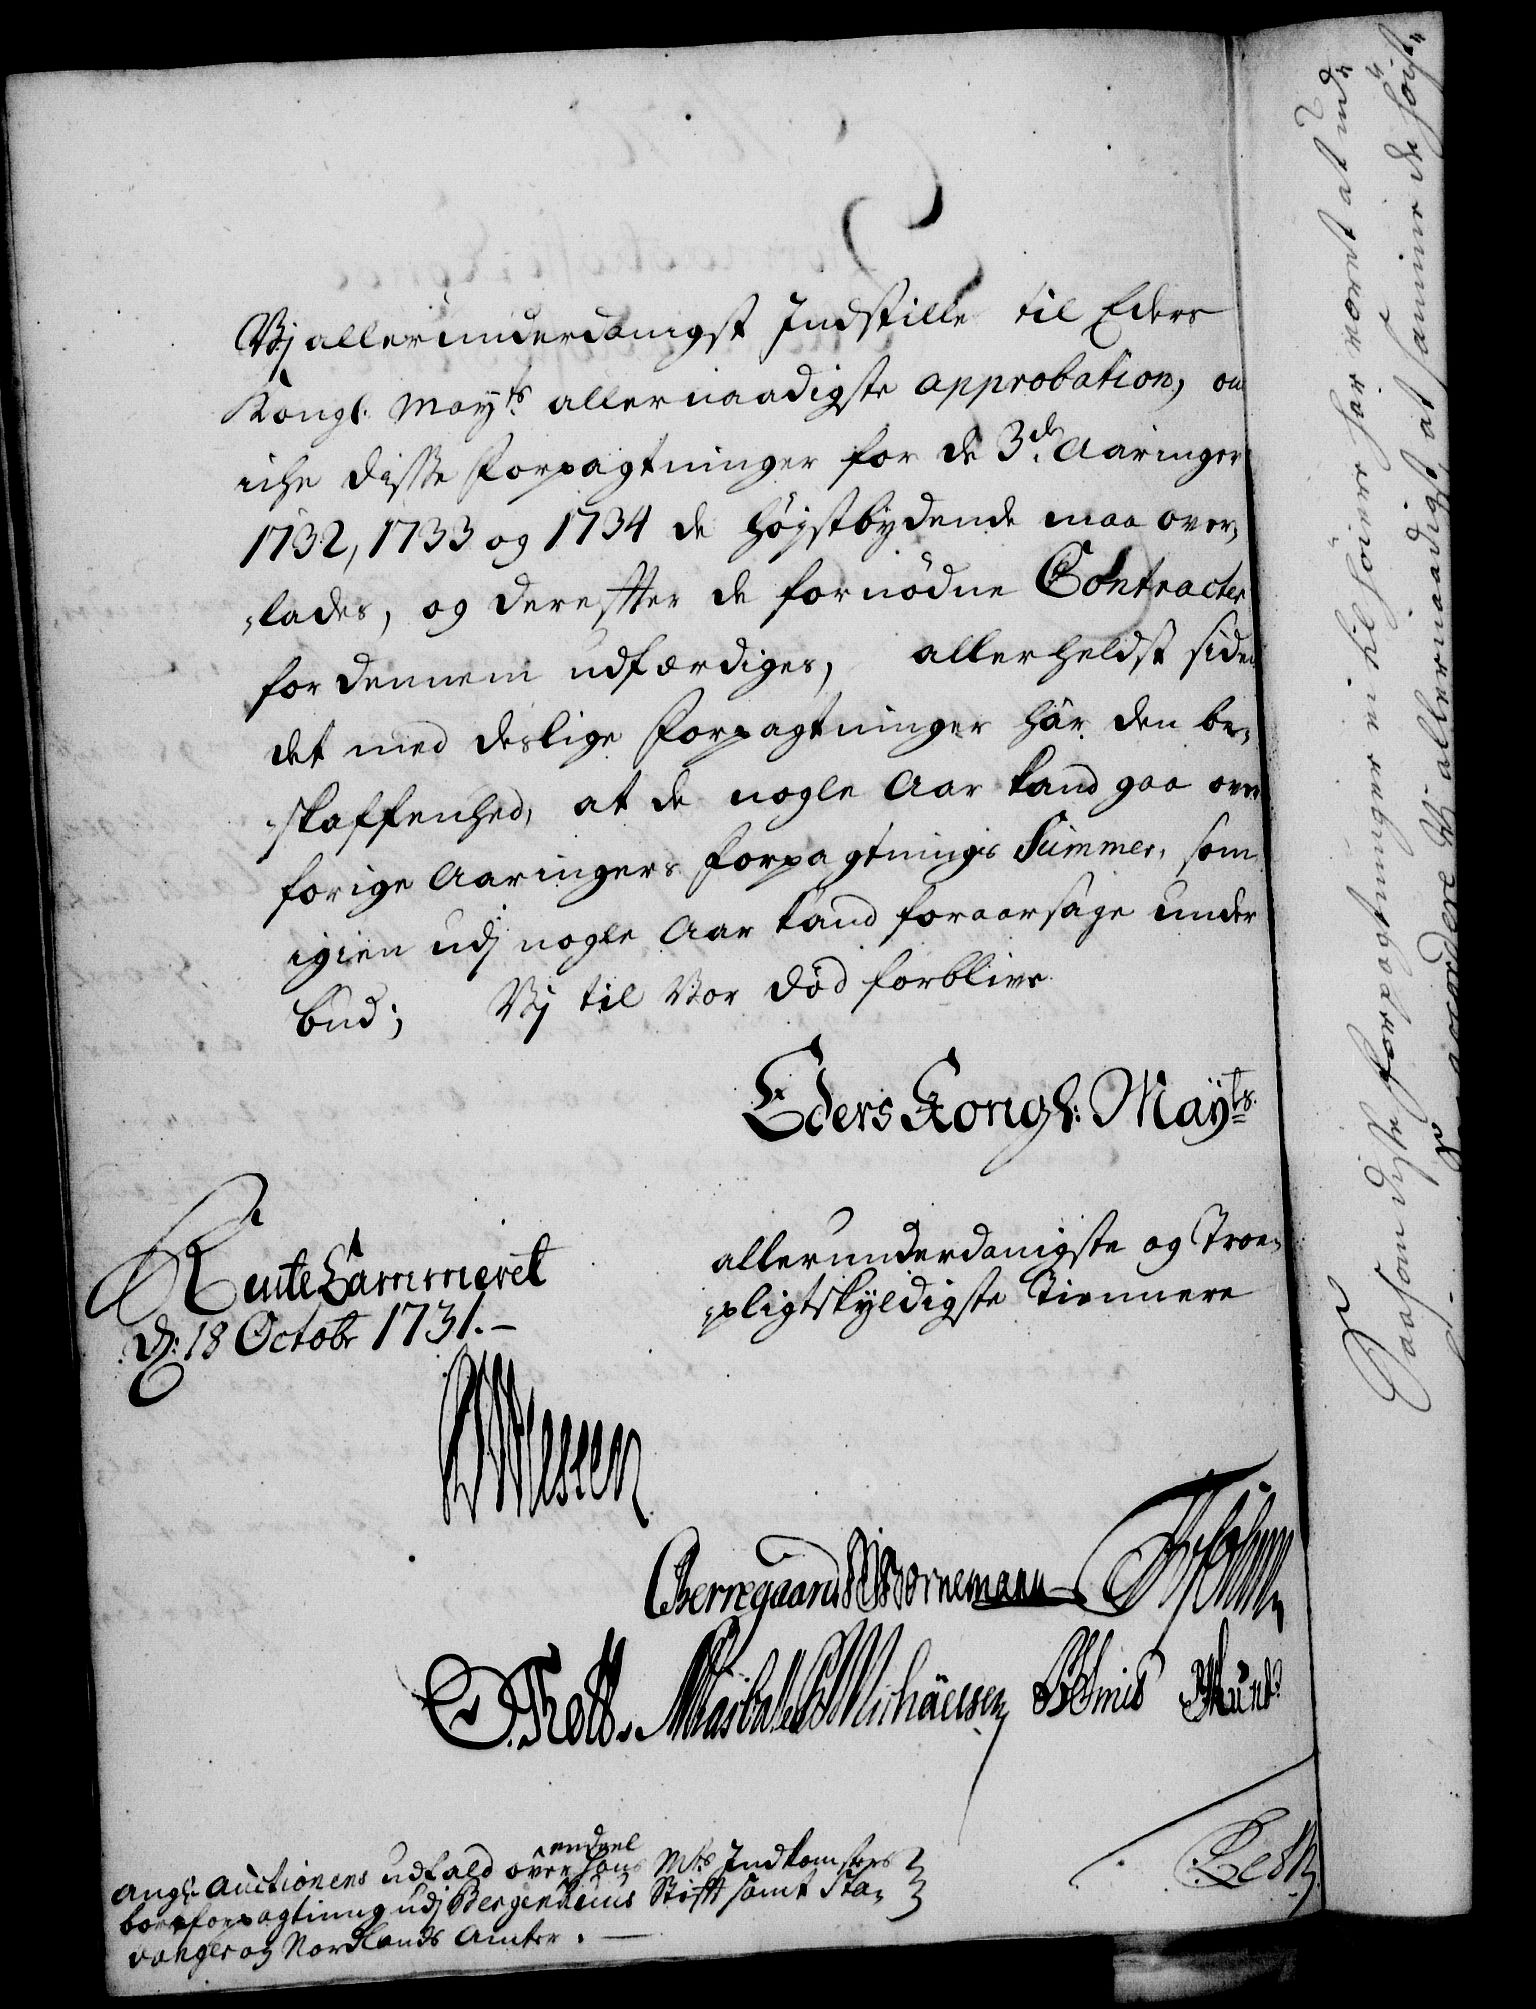 Vj allerunderdanigst Indstille til Eders
Kongl: Mayts allernaadigste approbation, om
iche disse Forpagtninger for de 3de Aaringer
1732, 1733 og 1734 de høystbydende maa over,
,lades, og derefter de fornødne Contracter
for dennem udfærdiges, allerheldst siden
det med deslige Forpagtninger har den be,
,skaffenhed, at de nogle Aar kand gaa over
forige Aaringers Forpagtnings Summer, som
igien udj nogle Aar kand foraarsage under
bud; Vj til Vor Død forblive
Eders Kongl: Mayts
allerunderdanigste og Troe,
,pligtskyldigste Tiennere
RenteKammeret
D: 18 Octobr 1731.-
Berregaard Bornemann
Thott. Michäelsen Munt
angl: Auctionens udfald over endeel Hans Mts Indkomsters
bortforpagtning udj Bergenhuus Stift samt Sta,
vanger og Nordlands Amter.
Saasom disse Forpagtninger ei til høiere har været at ud,
at samme de høist,